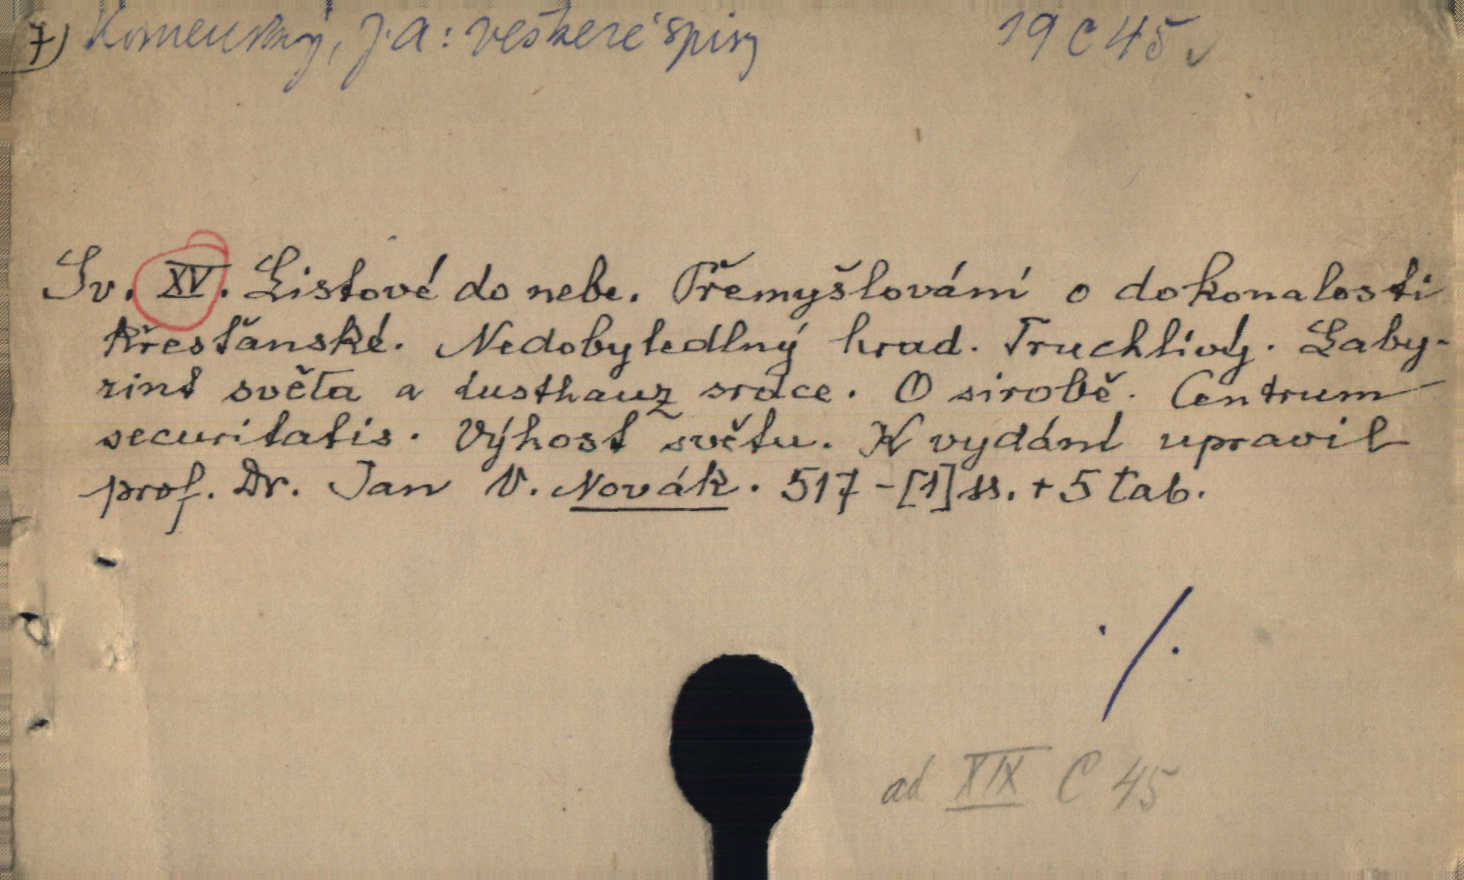 7) Komenský, J. A: veškeré spisy 19 C 45 ✓
Sv. XV. Listové do nebe. Přemyšlování o dokonalosti
křesťanské. Nedobytedlný hrad. Truchlivý. Laby-
rint světa a lusthauz srdce. O sirobě. Centrum
securitatis. Výhost světu. K vydání upravil
prof. Dr. Jan V. Novák. 517-[1] ss. + 5 tab.
./.
ad XIX C 45